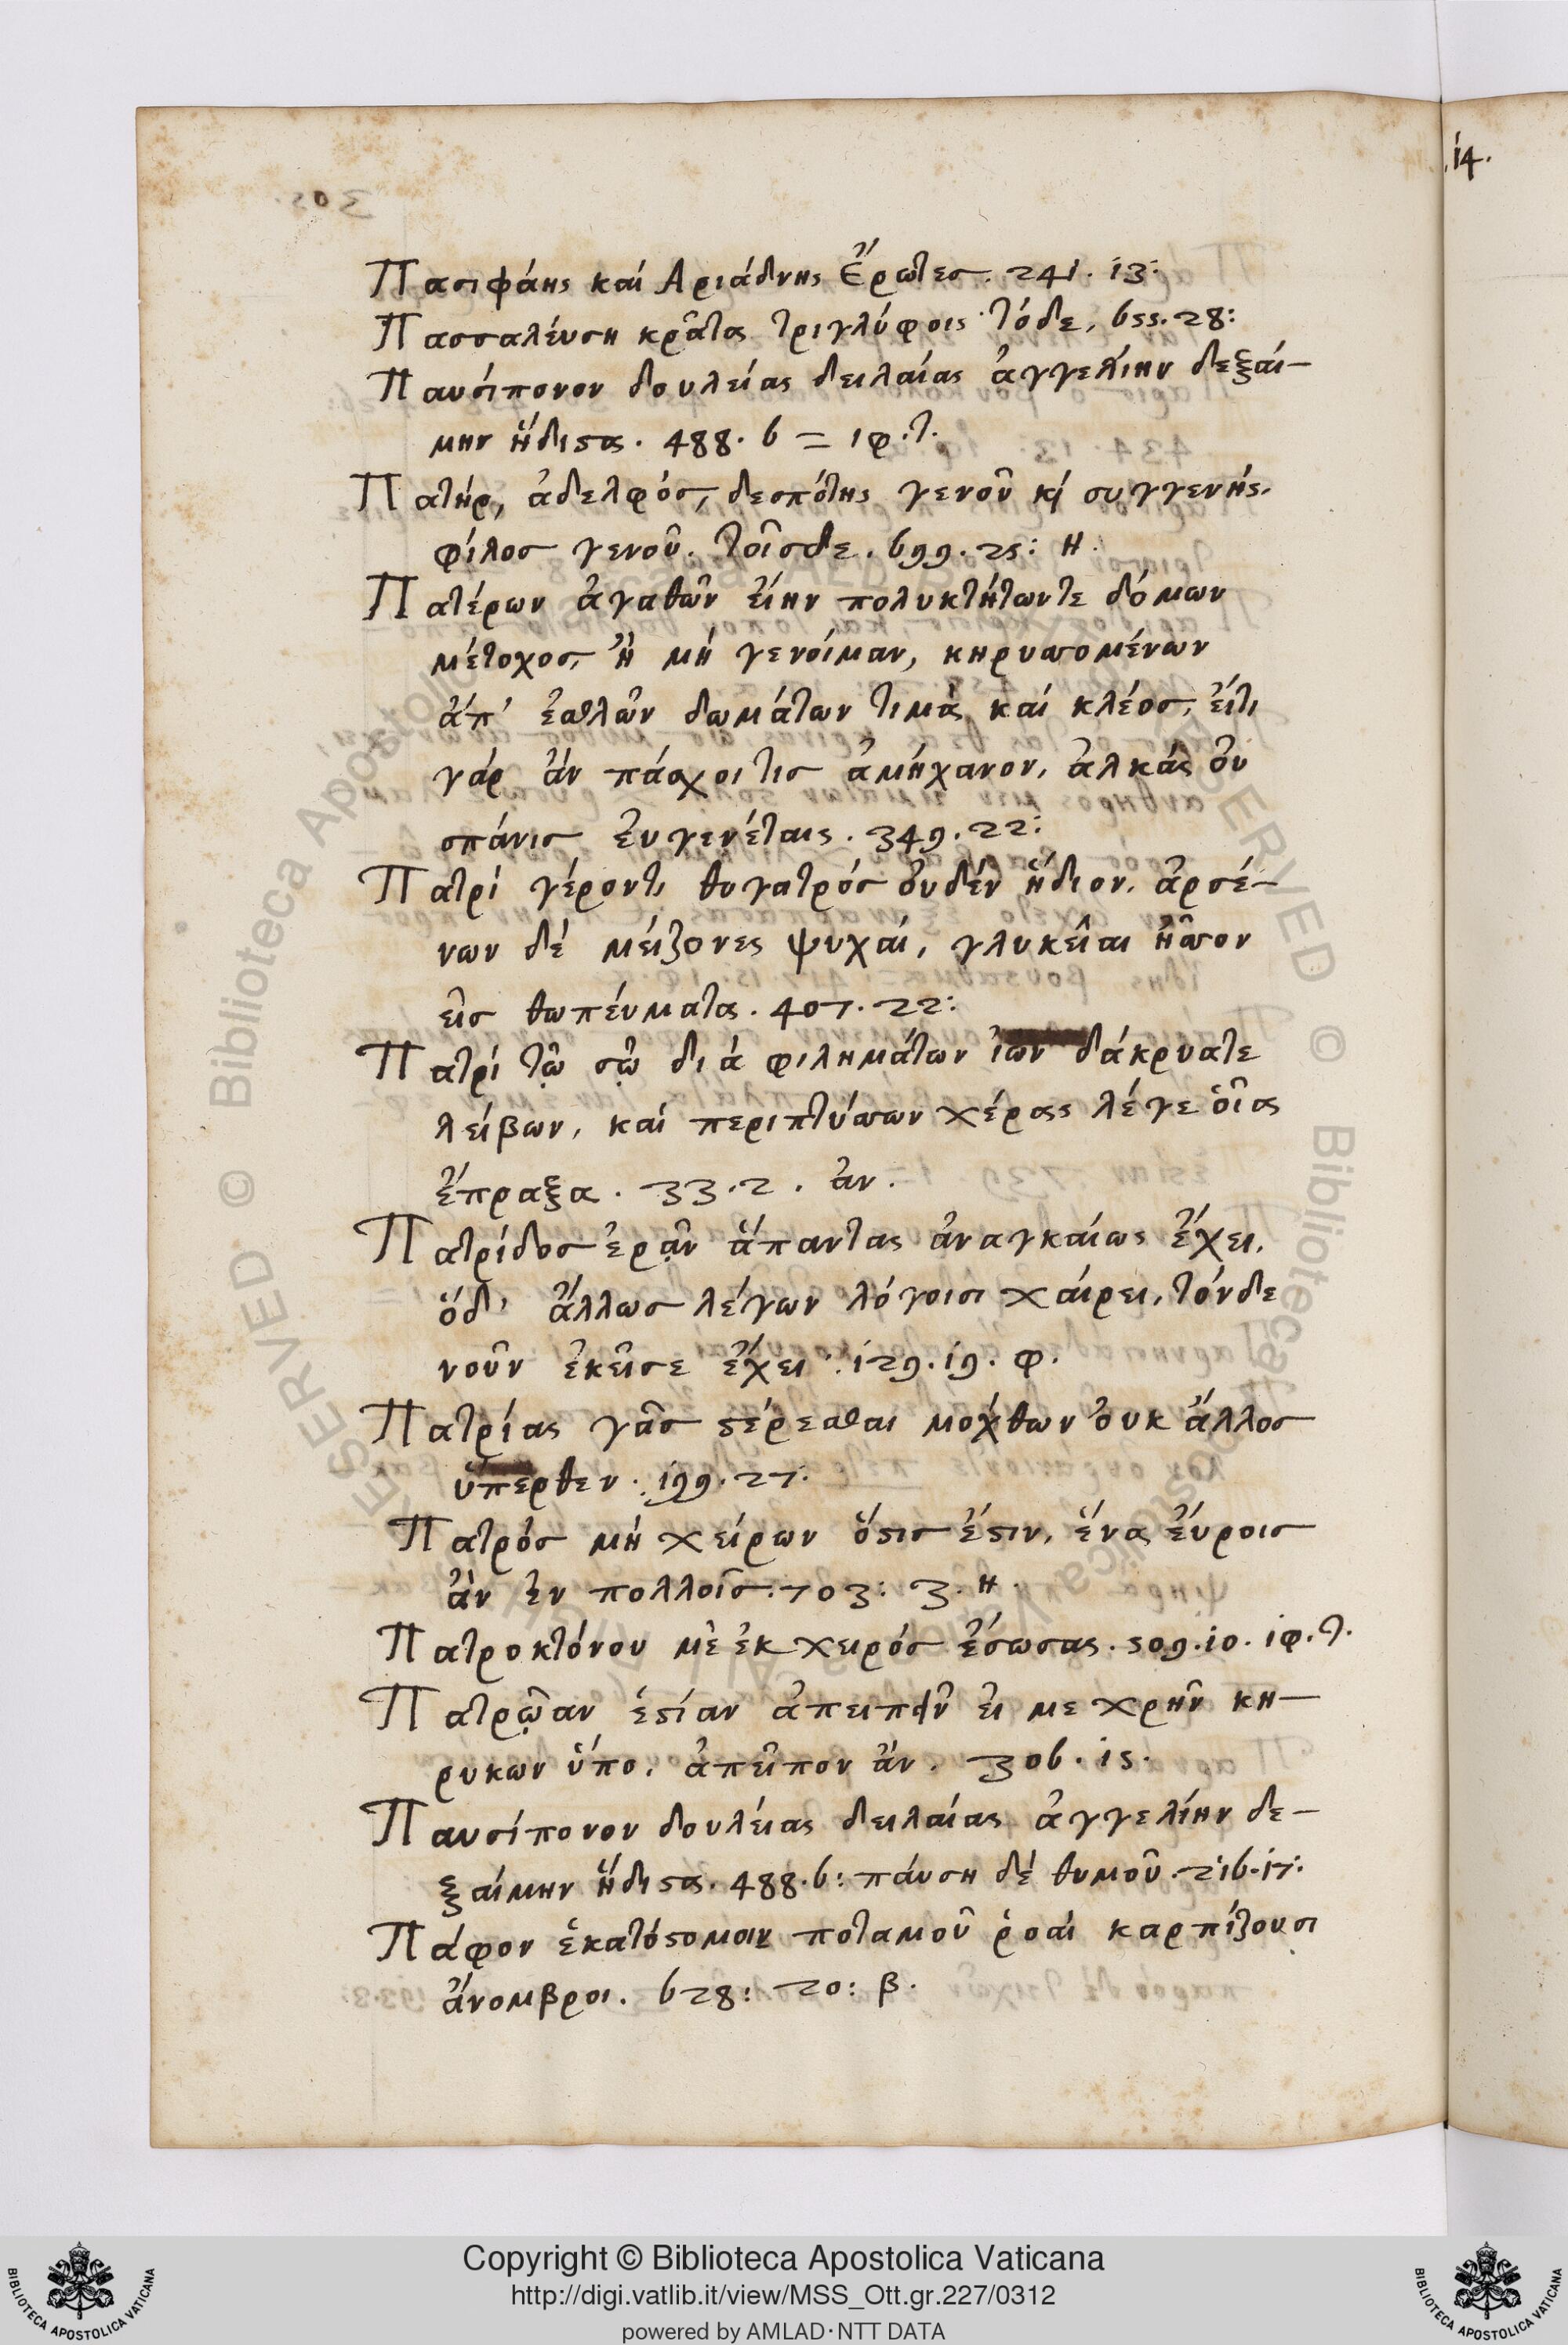 .14.
305.
Πασιφάης καί Αριάδνης Ἔρωτες. 241. 13:
Πασσαλέυση κρᾶτα τριγλύφοις τόδε, 655. 28:
Παυσίπονον δουλείας δειλαίας ἀγγελίην δεξαί-
μην ἥδιϛα. 488. 6 = ιφ. τ.
Πατήρ, ἀδελφός, δεσπότης γενοῦ κὶ συγγενής.
φίλος γενοῦ. τοῖσδε. 699. 25: Η.
Πατέρων ἀγαθῶν ἐίην πολυκτήτωντε δόμων
μέτοχος, ἢ μή γενοίμαν, κηρυσσομένων
ἀπ' ἐσθλῶν δωμάτων τιμὰ καί κλέος, ἐίτι
γάρ ἄν πάσχοι τις ἀμήχανον, ἀλκάς ὀυ
σπάνις ἐυγενέταις. 349. 22:
Πατρί γέροντι θυγατρός ὀυδέν ἥδιον. ἀρσέ-
νων δέ μείζονες ψυχαί, γλυκεῖαι ἧσσον
εἰς θωπέυματα. 407. 22:
Πατρί τῷ σῷ διά φιλημάτων ἰών δάκρυατε
λείβων, καί περιπτύσσων χέρας λέγε ὁῖα
ἔπραξα. 33. 2. ἀν.
Πατρίδος ἐρᾷν ἅπαντας ἀναγκαίως ἔχει.
ὅδ' ἄλλως λέγων λόγοισι χαίρει, τόνδε
νοῦν ἐκεῖσε ἔχει. 129. 19. φ.
Πατρίας γᾶς ϛέρεσθαι μοχθων ὀυκ ἄλλος
ὕπερθεν. 199. 27:
Πατρός μή χείρων ὅϛις ἐϛιν, ἕνα ἔυροις
ἂν ἐν πολλοῖς. 703: 3. Η.
Πατροκτόνου μὲ ἐκ χειρός ἔσωσας. 509. 10. ιφ. τ.
Πατρῷαν ἑϛίαν ἀπειπεῖν ἐι με χρῆν κη-
ρυκων ὕπο, ἀπεῖπον ἄν. 306. 15.
Παυσίπονον δουλείας δειλαίας ἀγγελίην δε-
ξαίμην ἥδιϛα. 488. 6: πάυση δέ θυμοῦ. 216. 17:
Πάφον ἑκατόϛομοι ποταμοῦ ῥοαί καρπίζουσι
ἄνομβροι. 628: 20: β.
Copyright © Biblioteca Apostolica Vaticana
http://digi.vatlib.it/view/MSS_Ott.gr.227/0312
powered by AMLAD·NTT DATA